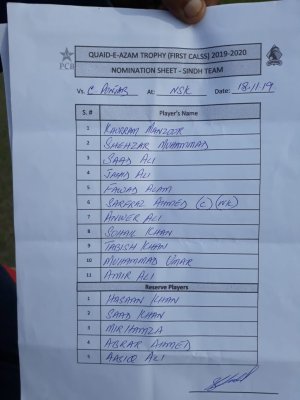 PCB
QUAID-E-AZAM TROPHY (FIRST CALSS) 2019-2020
NOMINATION SHEET - SINDH TEAM
Vs. C. PUNJAB At: NSK Date: 18.11.19
S. # Player's Name
1 KHURRAM MANZOOR
2 SHEHZAR MUHAMMAD
3 SAAD ALI
4 JAHID ALI
5 FAWAD ALAM
6 SARFRAZ AHMED (C) (WK)
7 ANWER ALI
8 SOHAIL KHAN
9 TABISH KHAN
10 MUHAMMAD UMAR
11 AMIR ALI
Reserve Players
1 HASSAN KHAN
2 SAAD KHAN
3 MIR HAMZA
4 ABRAR AHMED
5 AASIQ ALI